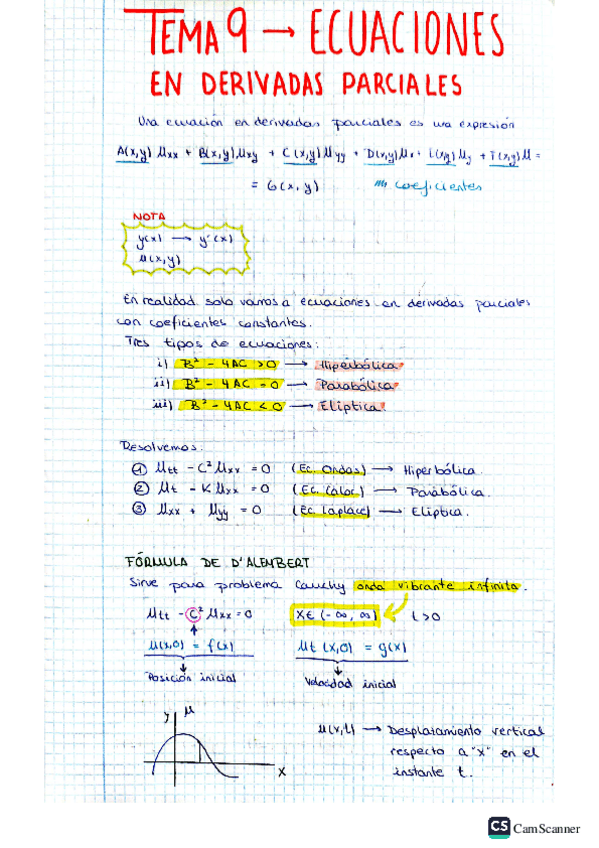 TEMA 9 → ECUACIONES
EN DERIVADAS PARCIALES
Una ecuación en derivadas parciales es una expresión
A(x,y) Uxx + B(x,y) Uxy + C(x,y) Uyy + D(x,y) Ux + E(x,y) Uy + F(x,y) U =
= G(x,y) coeficientes
NOTA
y(x) → y'(x)
u(x,y)
En realidad solo vamos a ecuaciones en derivadas parciales
con coeficientes constantes.
Tres tipos de ecuaciones:
i) B² - 4AC > 0 → Hiperbólica
ii) B² - 4AC = 0 → Parabólica
iii) B² - 4AC < 0 → Elíptica
Resolvemos:
① Utt - C² Uxx = 0 (Ec. Ondas) → Hiperbólica.
② Ut - K Uxx = 0 (Ec. Calor) → Parabólica.
③ Uxx + Uyy = 0 (Ec. Laplace) → Elíptica.
FÓRMULA DE D'ALEMBERT
Sirve para problema Cauchy onda vibrante infinita.
Utt - C² Uxx = 0 x ∈ (-∞, ∞) t > 0
U(x,0) = f(x) Ut (x,0) = g(x)
Posición inicial Velocidad inicial
y U
x
u(x,t) → Desplazamiento vertical
respecto a "x" en el
instante t.
CS CamScanner